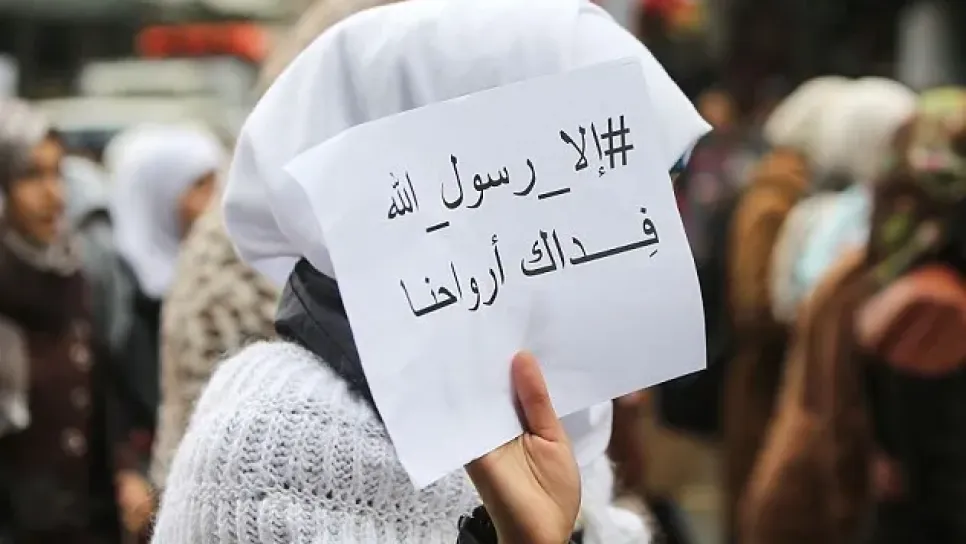 #إلا_رسول_الله
فِـــداك أرواحنا